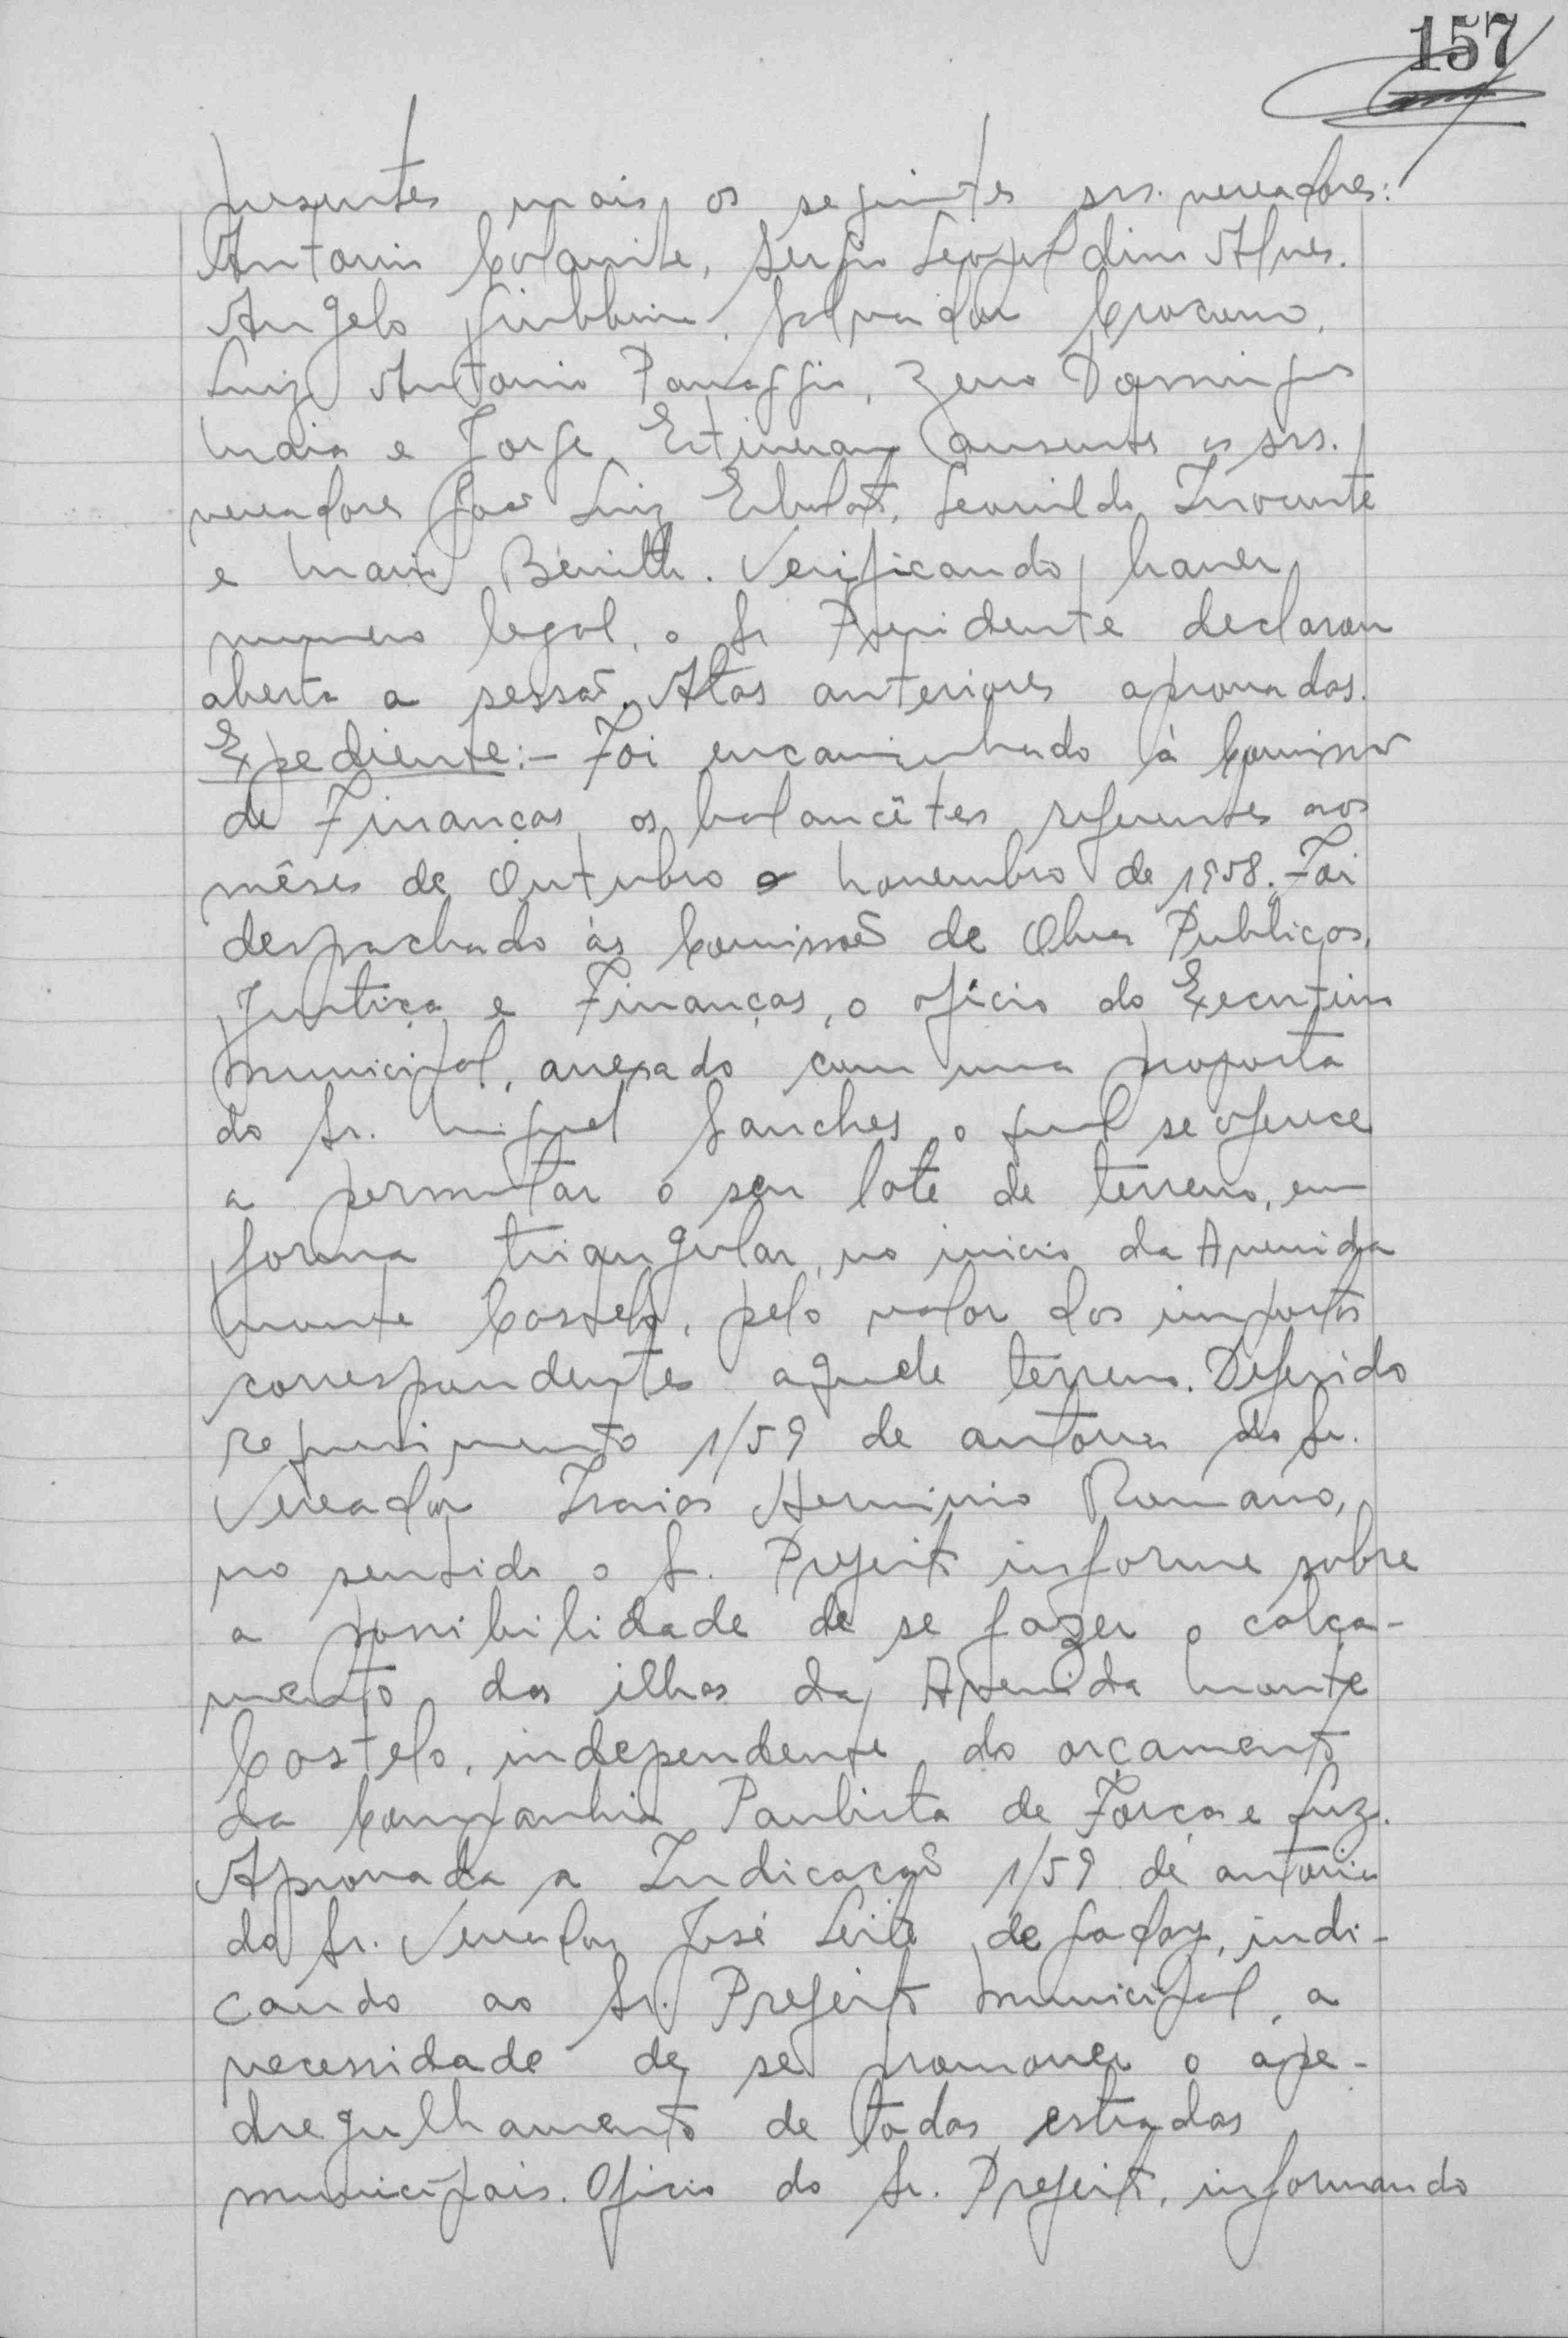 157
presentes mais os seguintes srs. vereadores:
Antonio Colamite, Sergio Leopoldino Alves.
Angelo Giubbina, Salvador Crocomo,
Luiz Antonio Panaggio, Zeno Domingos
Maia e Jorge. Estiveram ausentes os srs.
vereadores João Luiz, Leonildo Inocente
e Mario. Verificando haver
numero legal, o Sr Presidente declarou
aberta a sessão. Atas anteriores aprovadas.
Expediente:- Foi encaminhado à Comissão
de Finanças os balancêtes referentes aos
mêses de Outubro e Novembro de 1958. Foi
despachado às Comissoẽs de Obras Publicas,
Justiça e Finanças, o oficio do Executivo
Municipal, anexado com uma proposta
do Sr. Miguel Sanches, o qual se oferece
a permutar o seu lote de terreno, em
forma triangular, no inicio da Avenida
Monte Castelo, pelo valor dos impostos
correspondentes aquele terreno. Deferido
requerimento 1/59 de autoria do Sr.
Vereador Izaias Herminio Romano,
no sentido o Sr. Prefeito informe sobre
a possibilidade de se fazer o calça-
mento das ilhas da Avenida Monte
Castelo, independente do orçamento
da Companhia Paulista de Força e Luz.
Aprovada a Indicação 1/59 de autoria
do Sr. Vereador José Leite de Godoy, indi-
cando ao Sr. Prefeito Municipal, a
necessidade de se promover o ape-
dregulhamento de todas estradas
municipais. Oficio do Sr. Prefeito, informando